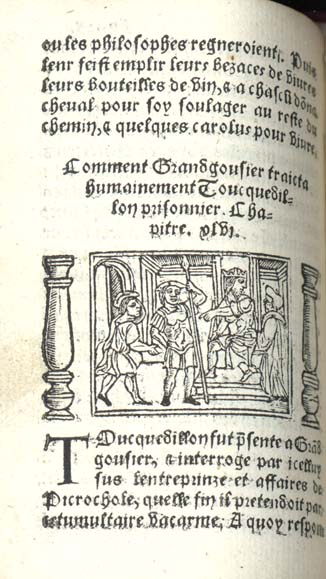 ou les philosophes regneroient. Puis
leur feist emplir leurs bezaces de viures
leurs bouteilles de vin, & a chascũ dõna
cheual pour soy soulager au reste du
chemin, & quelques carolus pour viure.
Comment Grandgousier traicta
humainement Toucquedil-
lon prisonnier. Cha-
pitre. xlvi.
TOucquedillon fut p̃sente a Grãd
gousier, & interroge par icelluy
sus lentreprinze et affaires de
Picrochole, quelle fin il pretendoit par
ce tumultaire vacarme, A quoy respon